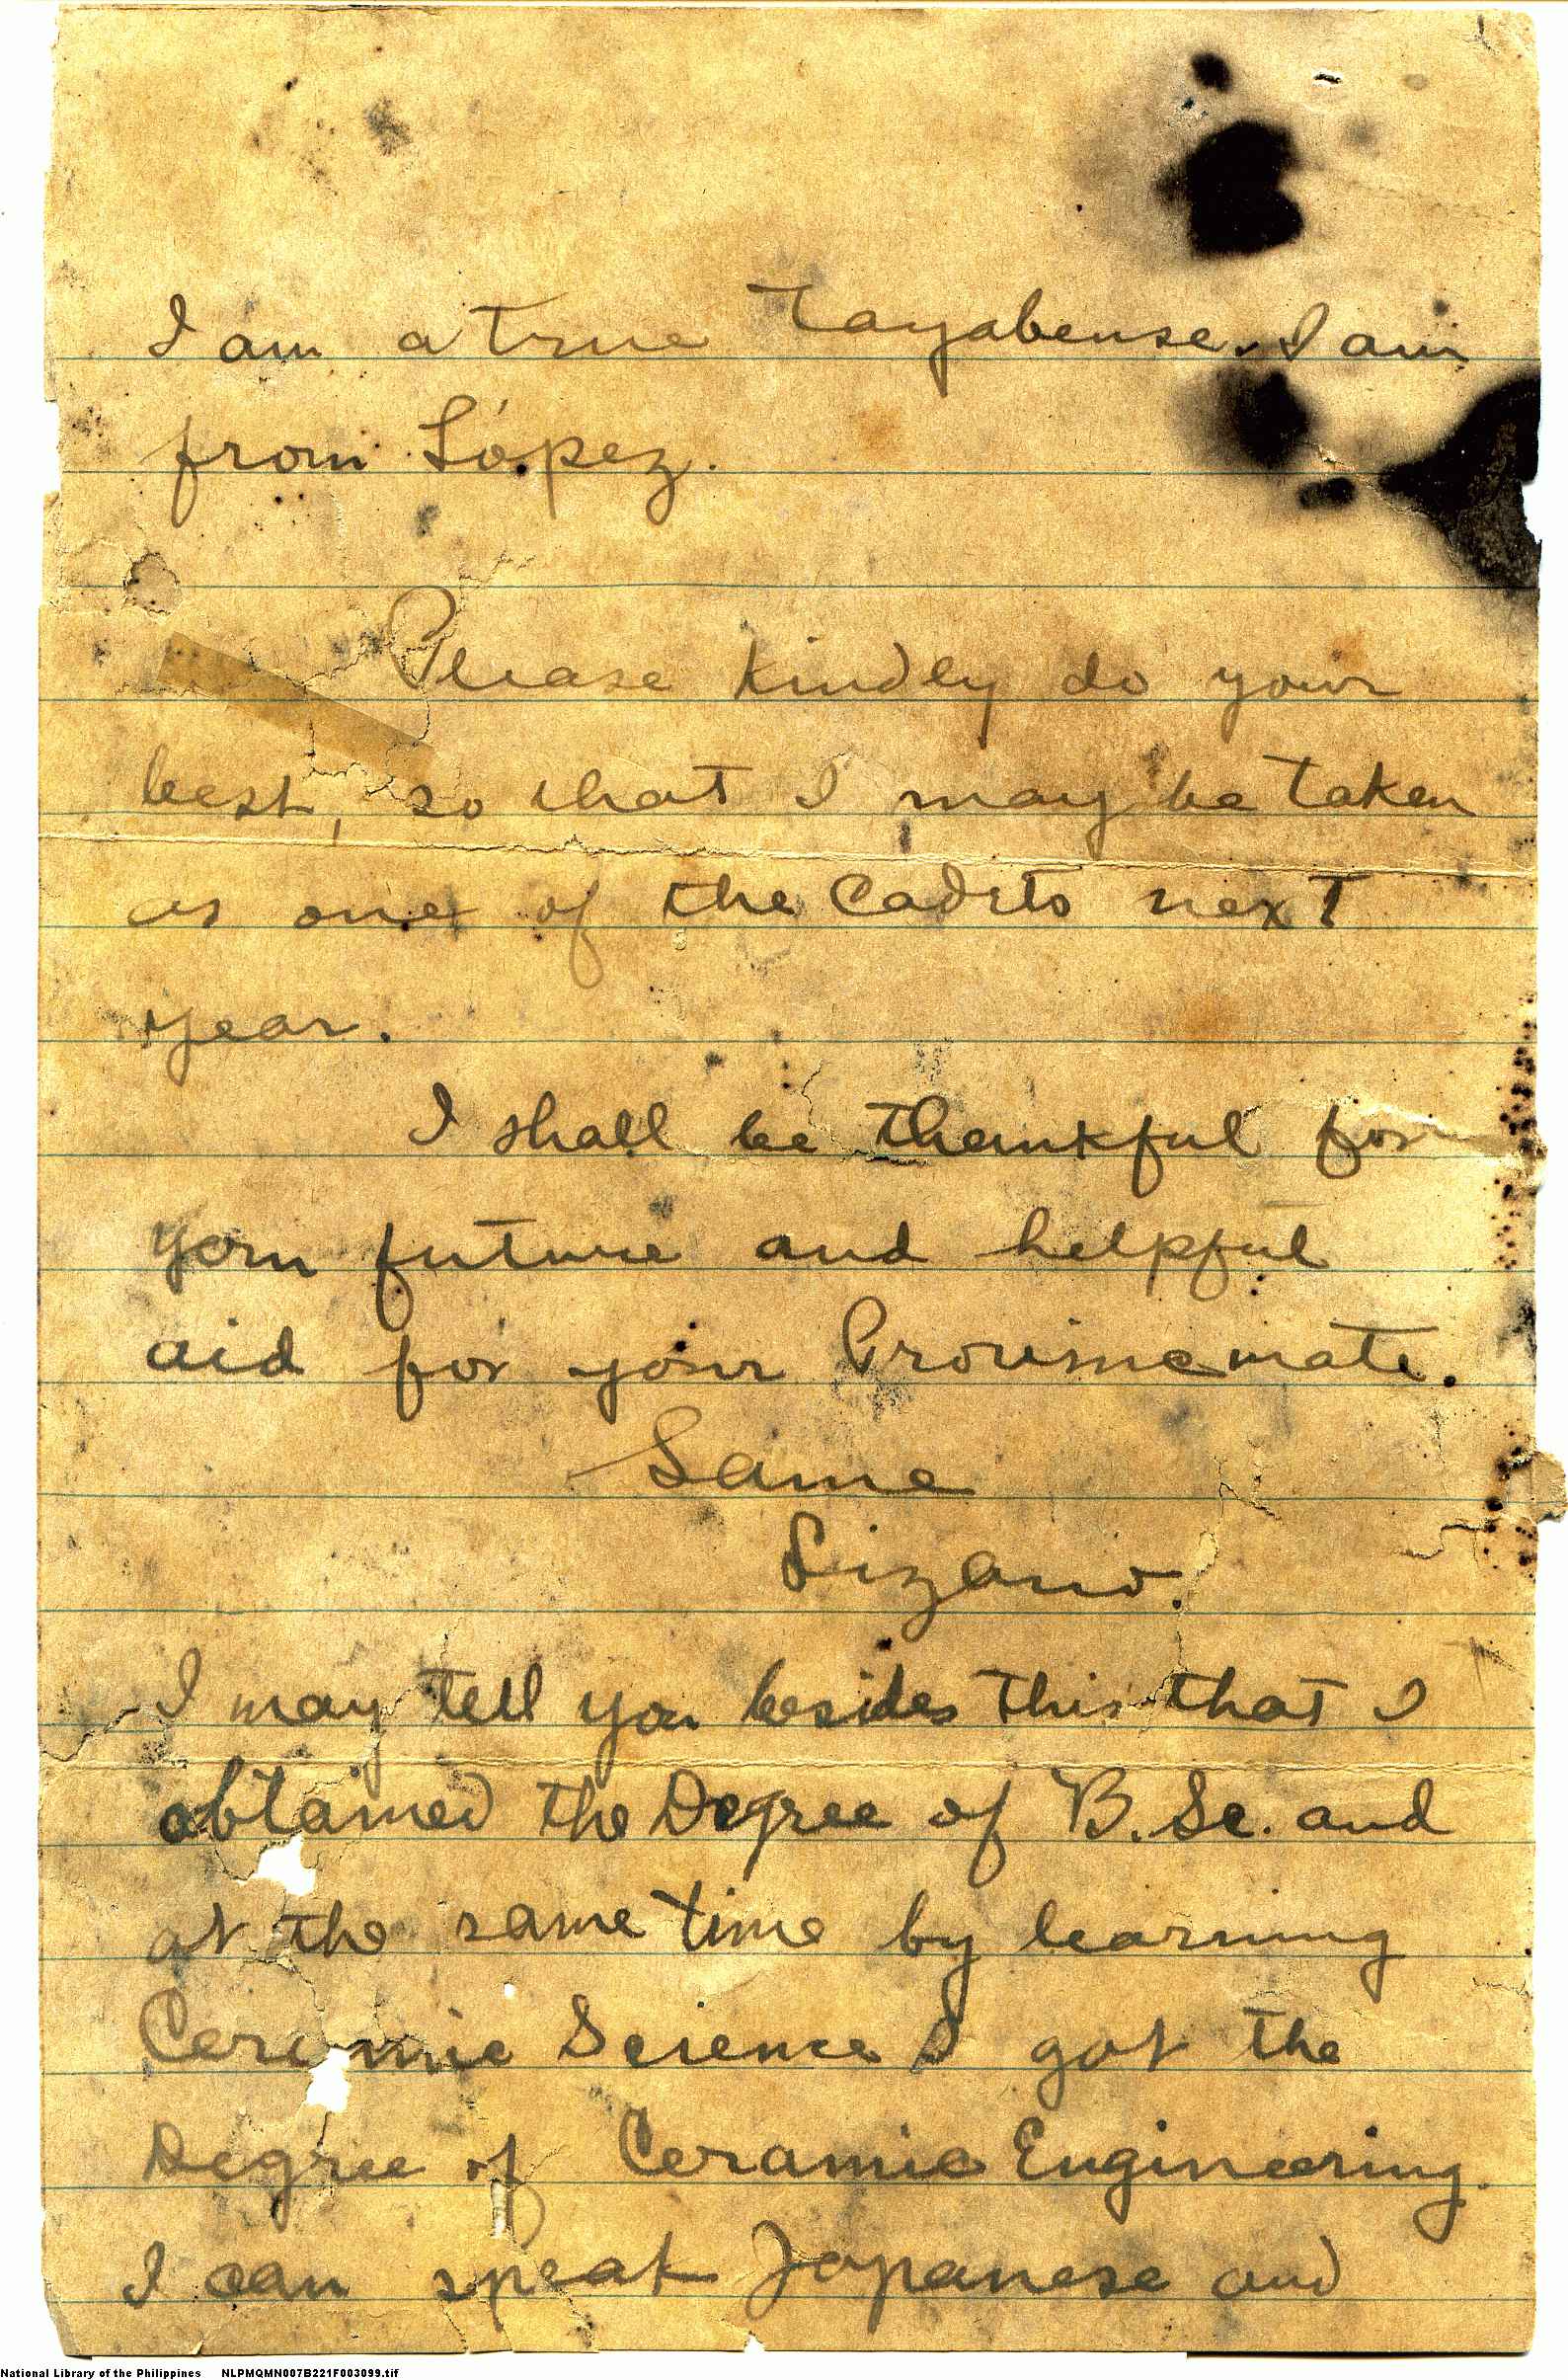 I am a true Tayabense. I am
from López.
Please kindly do your
best, so that I may be taken
as one of the Cadets next
year.
I shall be thankful for
your future and helpful
aid for your Provincemate.
Same
Lizano.
I may tell you besides this that I
obtained the Degree of B. Sc. and
at the same time by learning
Ceramic Science I got the
Degree of Ceramic Engineering.
I can speak Japanese and
National Library of the Philippines NLPMQMN007B221F003099.tif